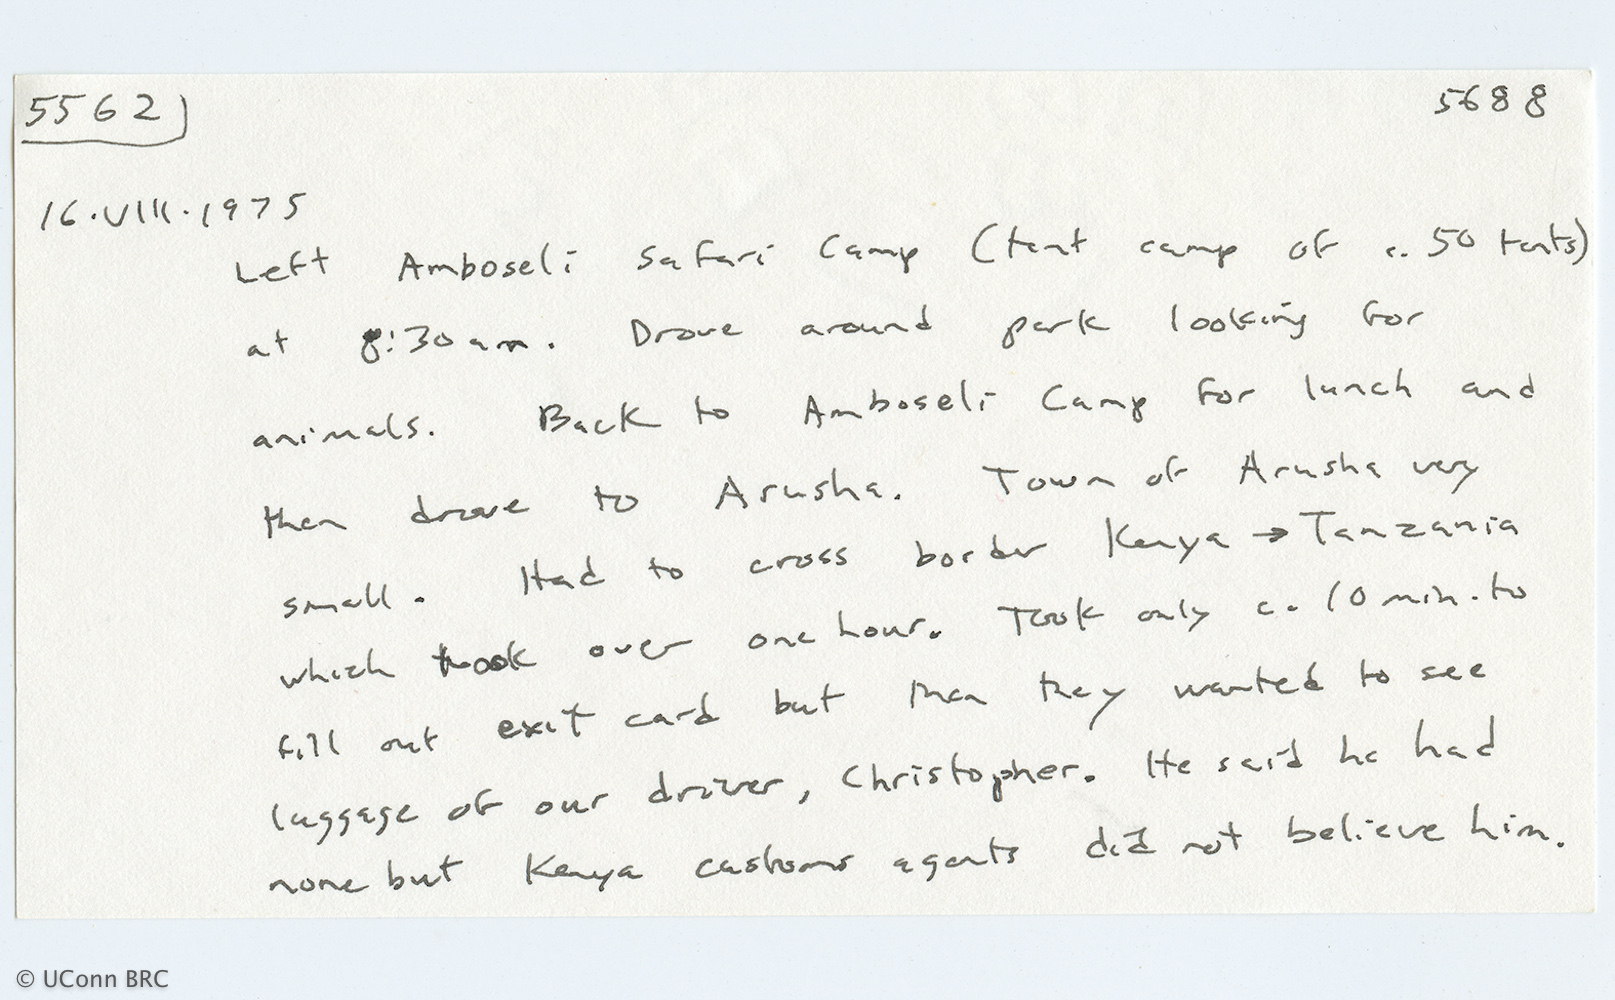 5562) 5688
16.VIII.1975
Left Amboseli Safari Camp (tent camp of c. 50 tents)
at 8:30am. Drove around park looking for
animals. Back to Amboseli Camp for lunch and
then drove to Arusha. Town of Arusha very
small. Had to cross border Kenya → Tanzania
which took over one hour. Took only c. 10 min. to
fill out exit card but then they wanted to see
luggage of our driver, Christopher. He said he had
none but Kenya customs agents did not believe him.
© UConn BRC